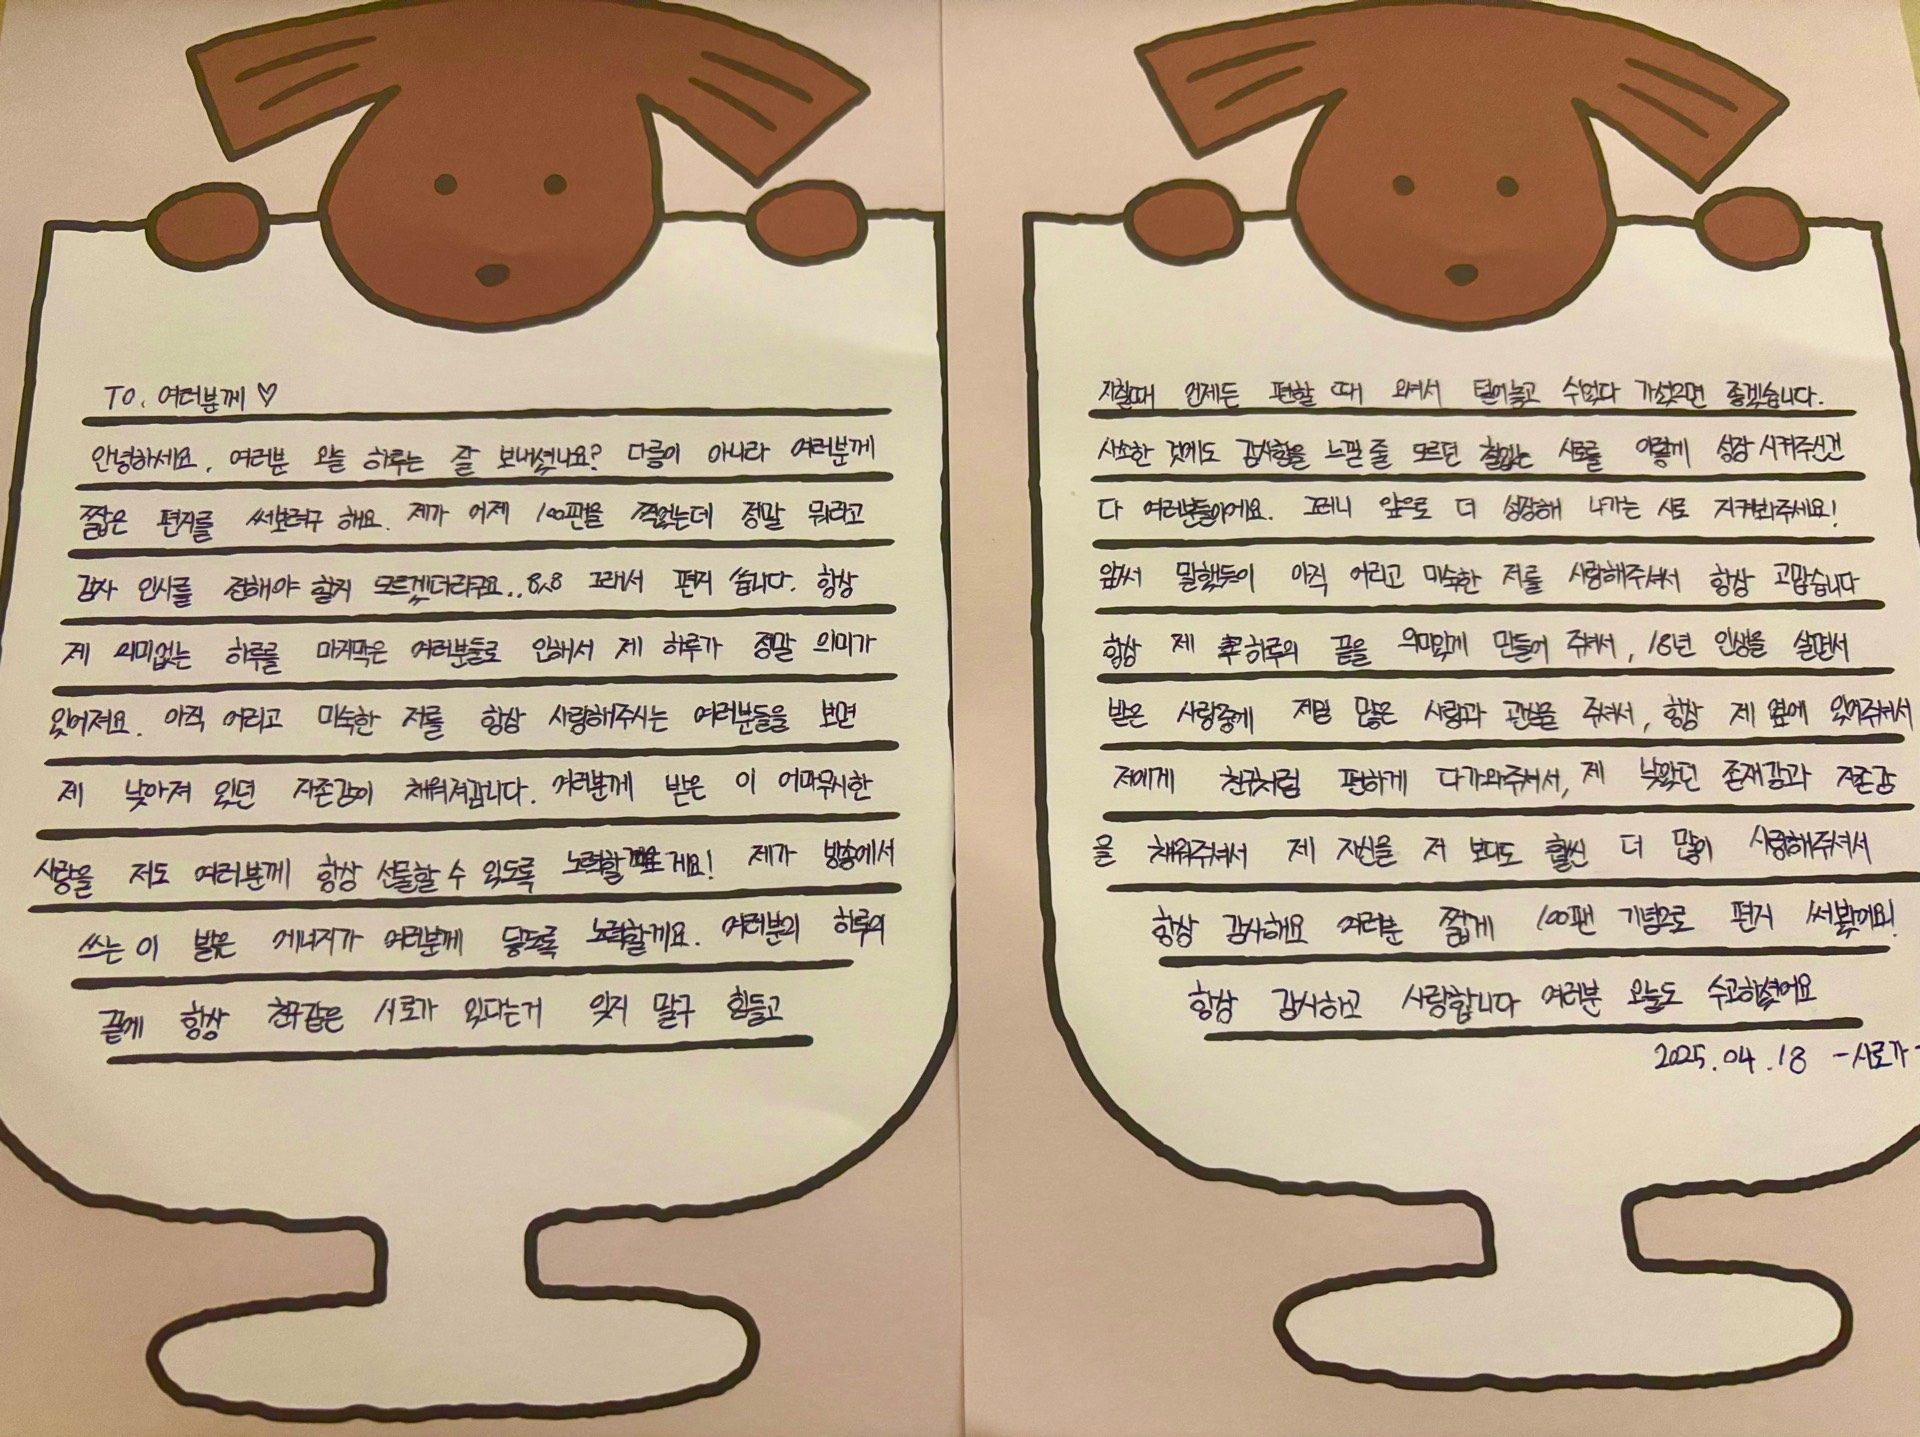 TO. 여러분께 ♡
안녕하세요, 여러분 오늘 하루는 잘 보내셨나요? 다름이 아니라 여러분께
짧은 편지를 써보려구 해요. 제가 어제 100팬을 찍었는데 정말 뭐라고
감사 인사를 전해야 할지 모르겠더라구요..8ㅅ8 그래서 편지 씁니다. 항상
제 의미없는 하루를 마지막은 여러분들로 인해서 제 하루가 정말 의미가
있어져요. 아직 어리고 미숙한 저를 항상 사랑해주시는 여러분들을 보면
제 낮아져 있던 자존감이 채워져갑니다. 여러분께 받은 이 어마무시한
사랑을 저도 여러분께 항상 선물할 수 있도록 노력할게요! 제가 방송에서
쓰는 이 밝은 에너지가 여러분께 닿도록 노력할게요. 여러분의 하루의
끝에 항상 친구같은 시로가 있다는거 잊지 말구 힘들고
지칠때 언제든 편할 때 오셔서 털어놓고 수없다 가셨으면 좋겠습니다.
사소한 것에도 감사함을 느낄 줄 모르던 철없는 시로를 이렇게 성장 시켜주신건
다 여러분들이에요. 그러니 앞으로 더 성장해 나가는 시로 지켜봐주세요!
앞서 말했듯이 아직 어리고 미숙한 저를 사랑해주셔서 항상 고맙습니다
항상 제 하루의 끝을 의미있게 만들어 주셔서, 18년 인생을 살면서
받은 사랑중에 제일 많은 사랑과 관심을 주셔서, 항상 제 옆에 있어주셔서
저에게 친구처럼 편하게 다가와주셔서, 제 낮았던 존재감과 자존감
을 채워주셔서 제 자신을 저 보다도 훨씬 더 많이 사랑해주셔서
항상 감사해요 여러분 짧게 100팬 기념으로 편지 써봤어요!
항상 감사하고 사랑합니다 여러분 오늘도 수고하셨어요
2025.04.18 -시로가-